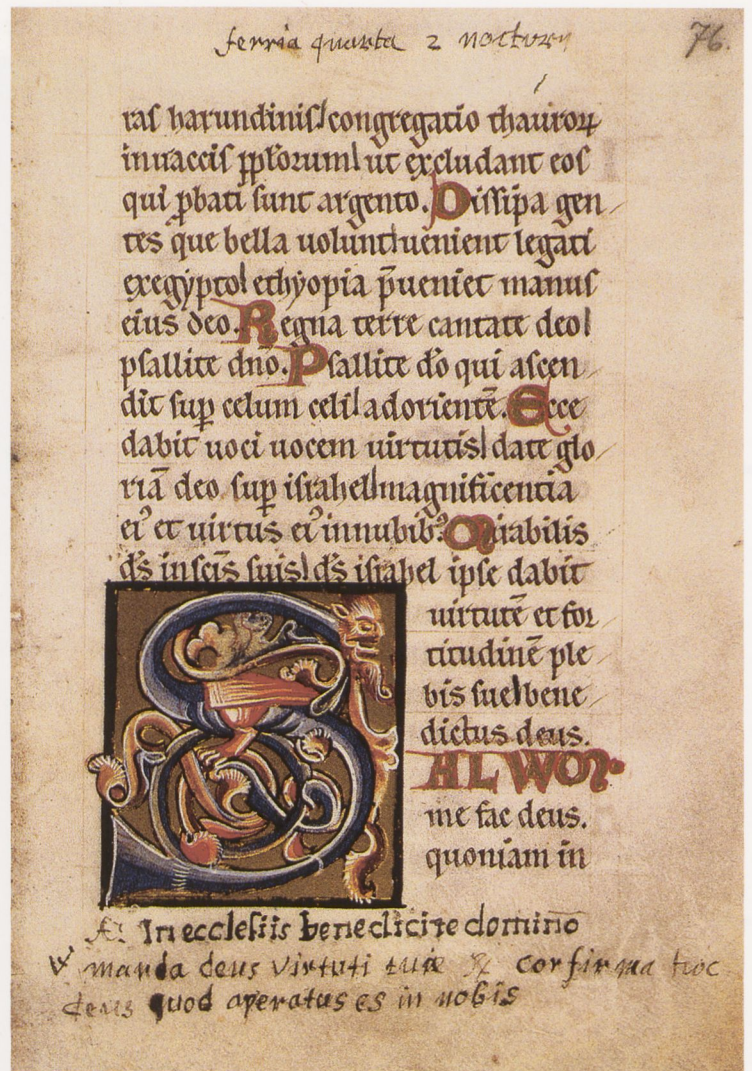 ferria quarta 2 nocturn
76.
ras harundinis congregatio thauroꝝ
inuaccis ꝓpl̄orum ut excludant eos
qui ꝓbati sunt argento. Dissipa gen
tes que bella uolunt uenient legati
exegypto ethyopia p̄ueniet manus
eius deo. Regna terre cantate deo
psallite dn̄o. Psallite do̅ qui ascen
dit suꝑ celum celi adoriente̅. Ecce
dabit uoci uocem uirtutis date glo
ria̅ deo suꝑ israhel magnificentia
eiꝰ et uirtus eiꝰ innubibꝫ. Mirabilis
ds̅ insc̅is suis ds̅ israhel ipse dabit
uirtute̅ et for
titudine̅ ple
bis sue bene
dictus deus.
SALWOM
me fac deus.
quoniam in
A: In ecclesiis benedicite domino
manda deus virtuti tuæ ℟ confirma hoc
deus quod operatus es in nobis